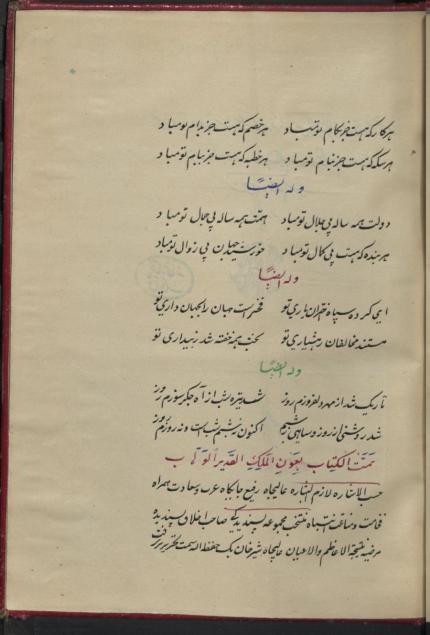 هر کار که هست جز بکام تو مباد هر خصم که هست جز بدام تو مباد
هر سکه که هست جز بنام تو مباد هر خطبه که هست جز بنام تو مباد
وله ایضاً
دولت همه ساله بی جلال تو مباد همت همه ساله بی جمال تو مباد
هر بنده که هست بی کمال تو مباد خورشید جهان بی زوال تو مباد
وله ایضاً
ای کرده سپاه اختران یاری تو فخرست جهان را بجهان داری تو
مستند مخالفان ز هشیاری تو بخت همه خفته شد ز بیداری تو
وله ایضاً
تاریک شد از مهر دلفروزم روز شد تیره شب از آه جگر سوزم روز
شد روشنی از روز و سیاهی ز شبم اکنون نه شبم شب است و نه روزم روز
تمت الکتاب بعون الملک القدیر الوهاب
حسب الاشاره لازم البشاره عالیجاه رفیع جایگاه عزت و سعادت همراه
فخامت و مناعت انتباه منتخب مجموعه پسندیدگی صاحب اخلاق پسندیده
مرضیه نتیجة الاعاظم والاعیان عالیجاه شیرخان بک حفظه الله سمت تحریر پذیرفت